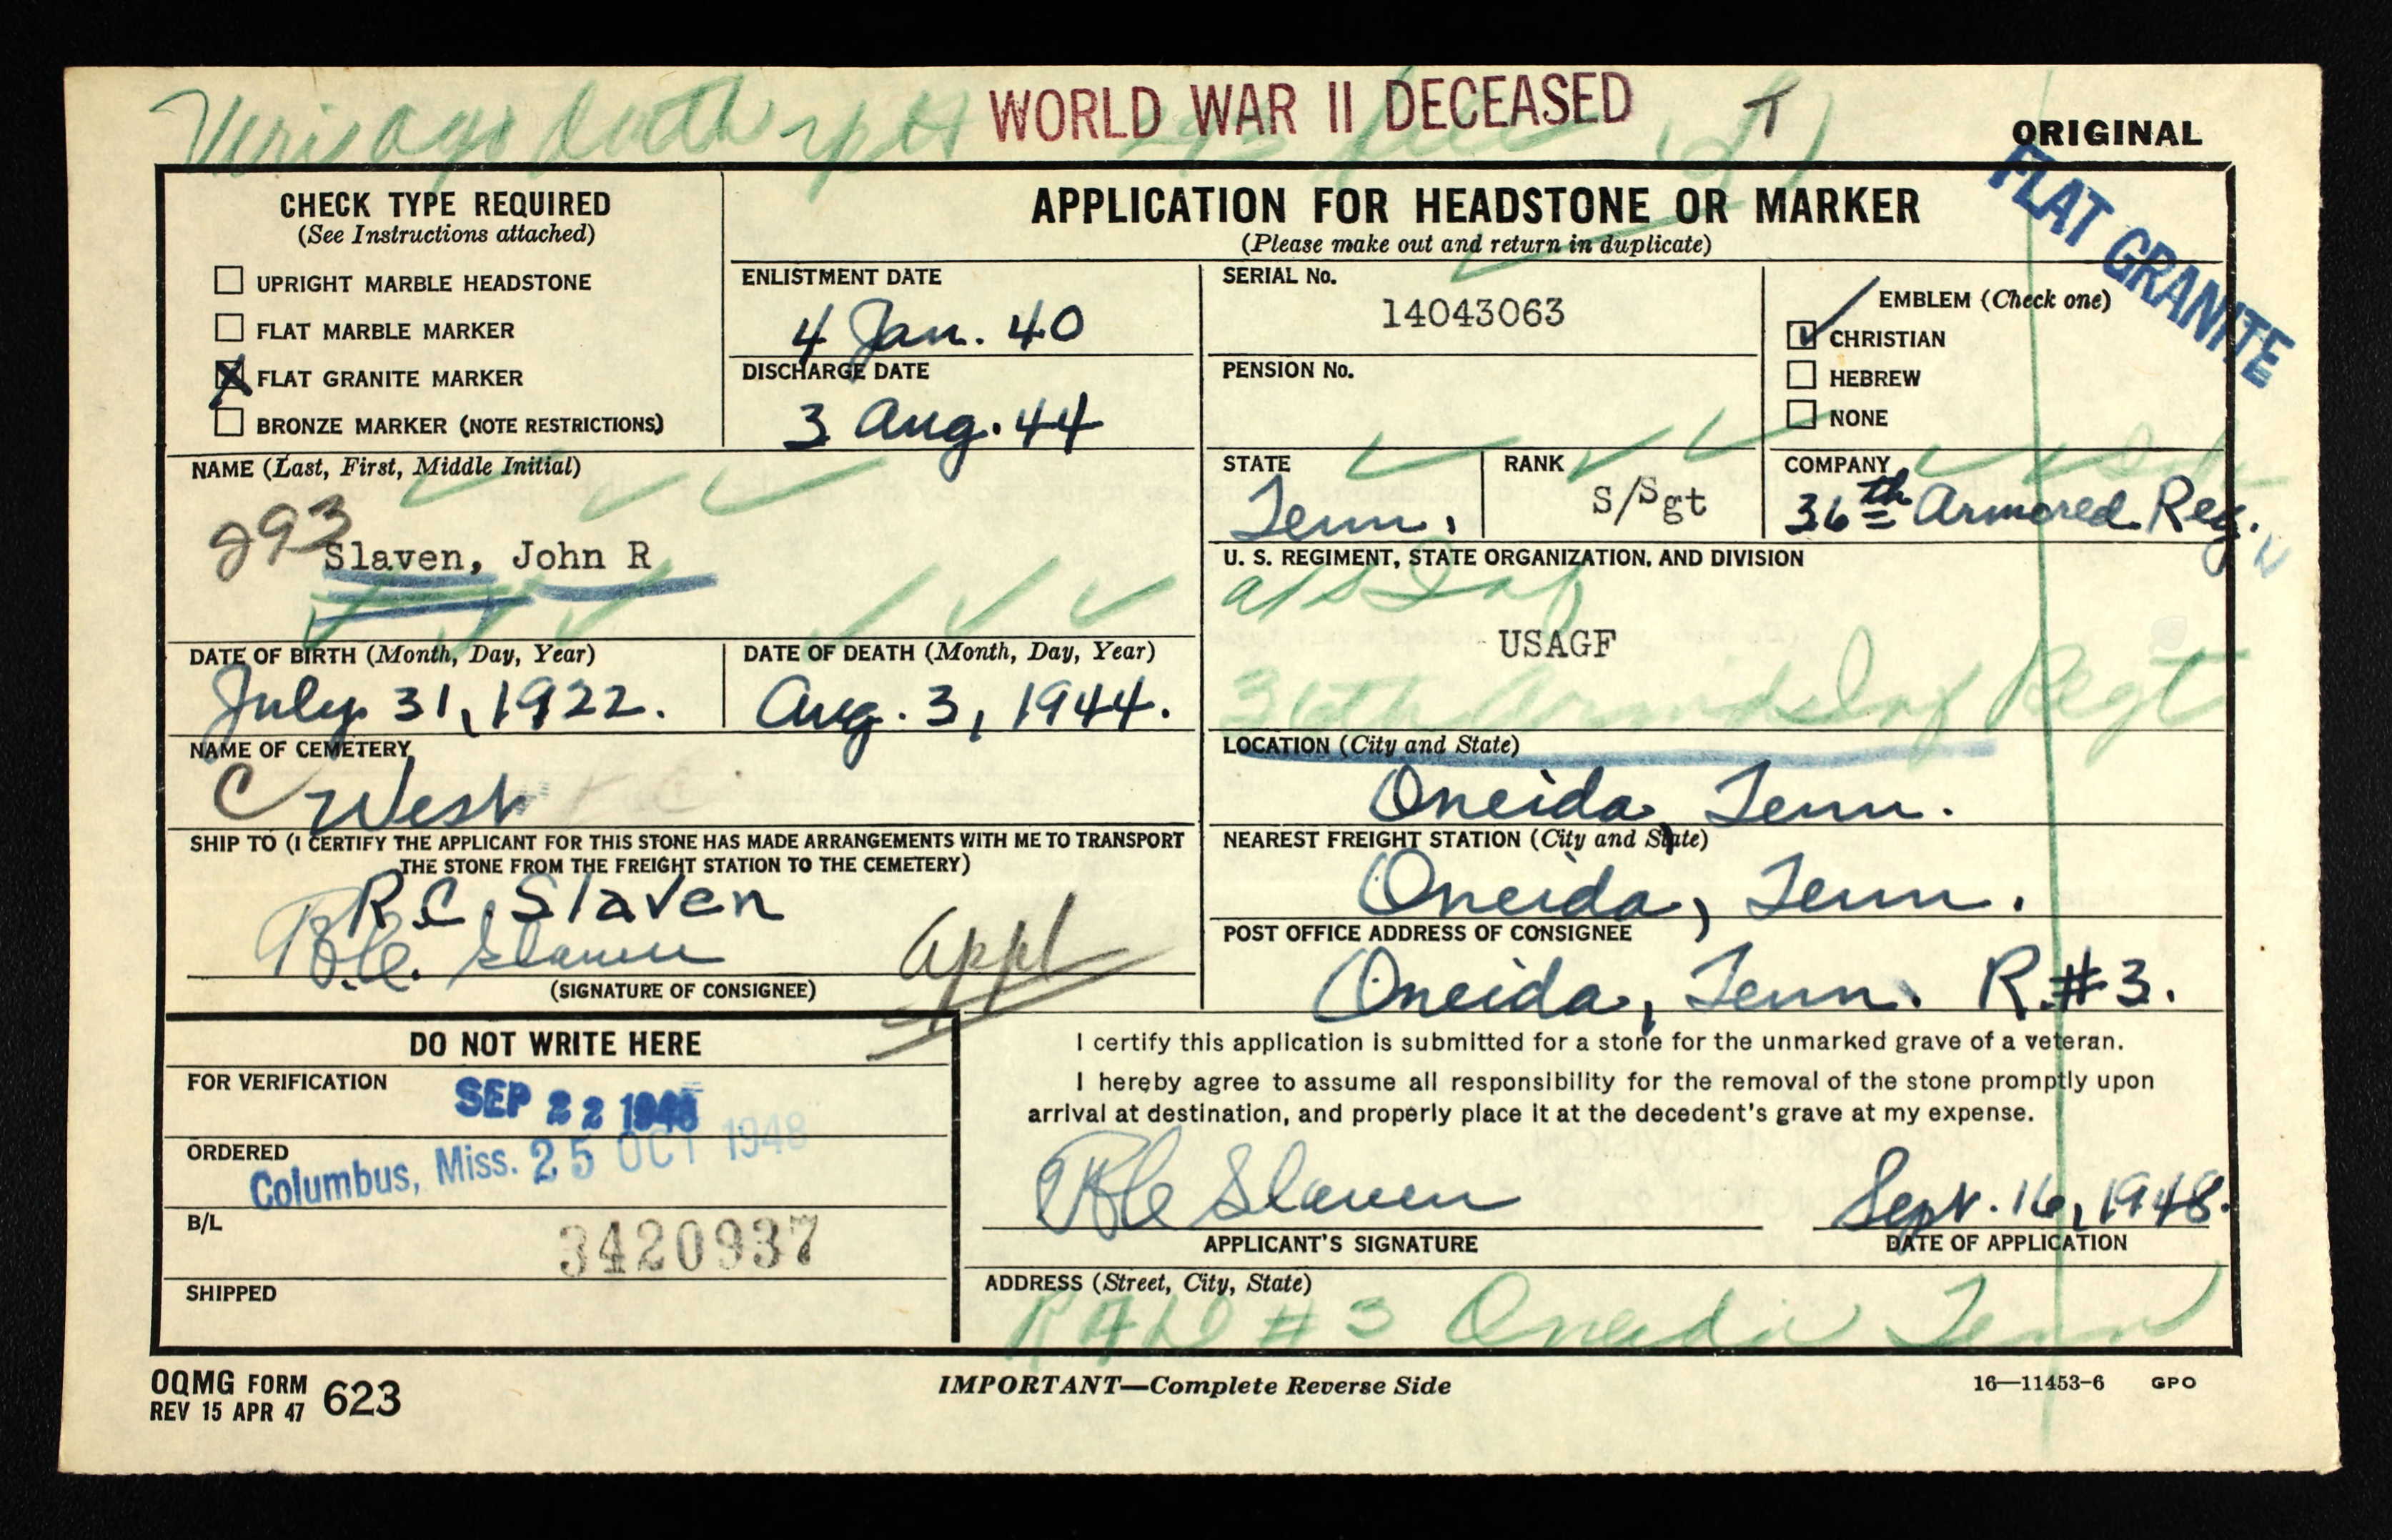 WORLD WAR II DECEASED
T
ORIGINAL
FLAT GRANITE
CHECK TYPE REQUIRED
(See Instructions attached)
UPRIGHT MARBLE HEADSTONE
FLAT MARBLE MARKER
X FLAT GRANITE MARKER
BRONZE MARKER (NOTE RESTRICTIONS)
APPLICATION FOR HEADSTONE OR MARKER
(Please make out and return in duplicate)
ENLISTMENT DATE
4 Jan. 40
DISCHARGE DATE
3 Aug. 44
SERIAL No.
14043063
PENSION No.
EMBLEM (Check one)
CHRISTIAN
HEBREW
NONE
NAME (Last, First, Middle Initial)
293
Slaven, John R
STATE
Tenn.
RANK
S/Sgt
COMPANY
36th Armored Reg.
U. S. REGIMENT, STATE ORGANIZATION, AND DIVISION
USAGF
36th Armd Inf Regt
DATE OF BIRTH (Month, Day, Year)
July 31, 1922.
DATE OF DEATH (Month, Day, Year)
Aug. 3, 1944.
NAME OF CEMETERY
C West
LOCATION (City and State)
Oneida, Tenn.
SHIP TO (I CERTIFY THE APPLICANT FOR THIS STONE HAS MADE ARRANGEMENTS WITH ME TO TRANSPORT
THE STONE FROM THE FREIGHT STATION TO THE CEMETERY)
R.C. Slaven
R.C. Slaven
appl
(SIGNATURE OF CONSIGNEE)
NEAREST FREIGHT STATION (City and State)
Oneida, Tenn.
POST OFFICE ADDRESS OF CONSIGNEE
Oneida, Tenn. R.#3.
DO NOT WRITE HERE
FOR VERIFICATION
SEP 22 1948
ORDERED
Columbus, Miss. 25 OCT 1948
B/L
3420937
SHIPPED
I certify this application is submitted for a stone for the unmarked grave of a veteran.
I hereby agree to assume all responsibility for the removal of the stone promptly upon
arrival at destination, and properly place it at the decedent's grave at my expense.
R C Slaven
APPLICANT'S SIGNATURE
Sept. 16, 1948.
DATE OF APPLICATION
ADDRESS (Street, City, State)
#3 Oneida Tenn
OQMG FORM 623
REV 15 APR 47
IMPORTANT—Complete Reverse Side
16—11453-6 GPO